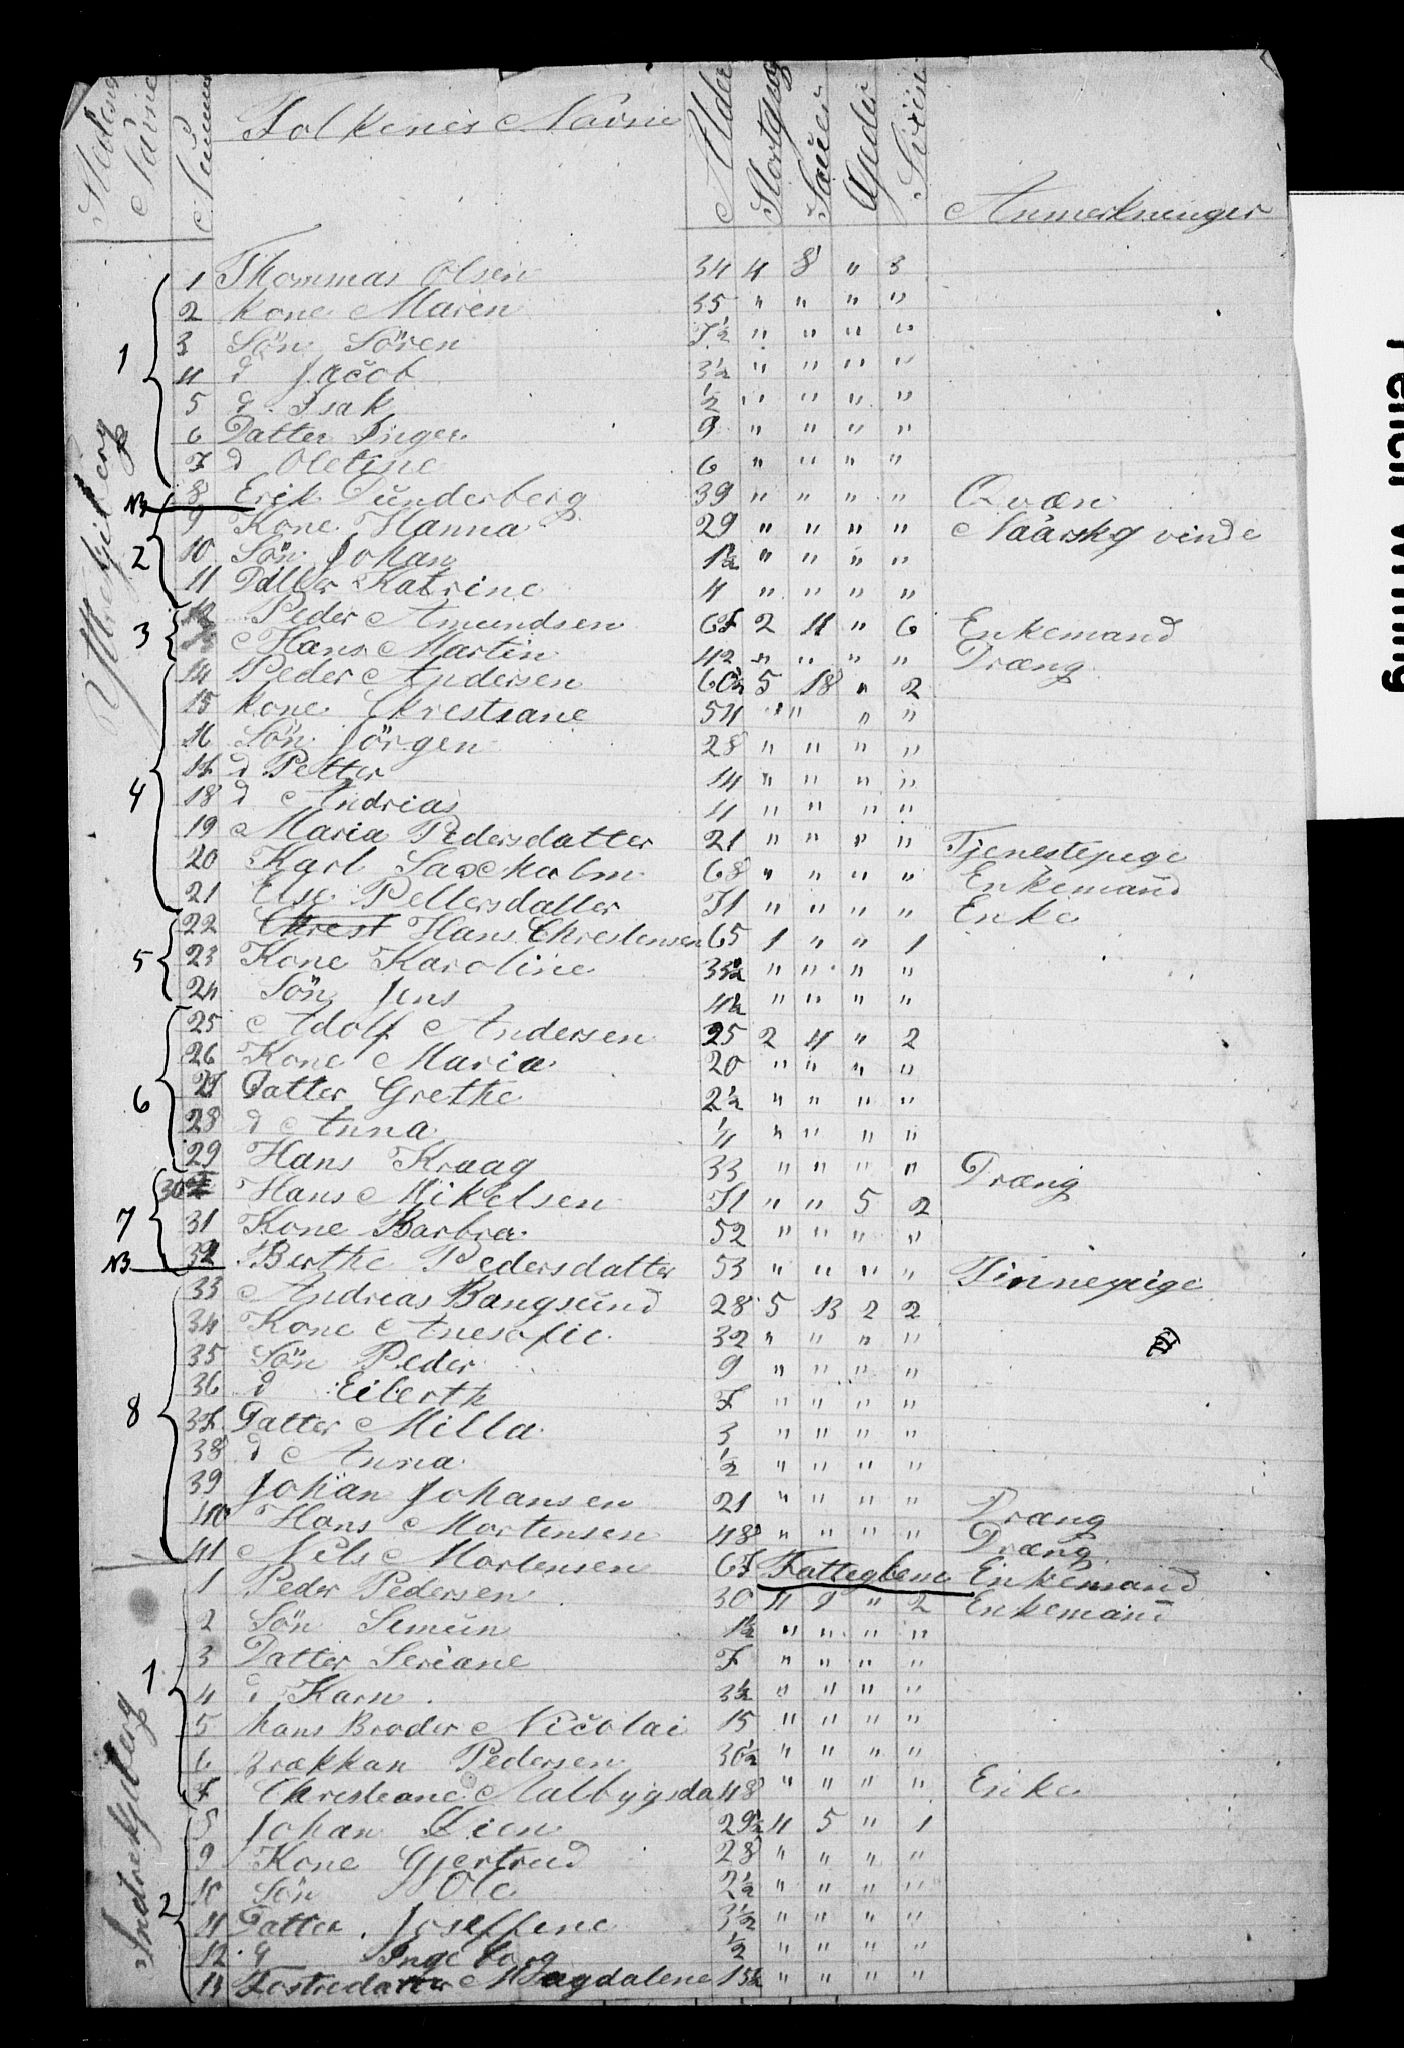 Stedens Navne Nummer Folkenes Navne Alder Stortqvæg Sauer Gjeder Sviin Anmerkninger
Yttregjilberg
1 1 Thommas Olsen 34 4 8 " 3
2 Kone Maren 35 " " " "
3 Sön Sören 7½ " " " "
4 d Jacob 3½ " " " "
5 d Isak ½ " " " "
6 Datter Inger 9 " " " "
7 d Oletine 6 " " " "
NB 8 Erik Dunderberg 39 " " " " Qvæn
2 9 Kone Hanna 29 " " " " Naarskqvinde
10 Sön Johan 1½ " " " "
11 Datter Katrine 4 " " " "
3 12 Peder Amundsen 67 2 4 " 6 Enkemand
13 Hans Martin 42 " " " " Dræng
4 14 Peder Andersen 60½ 5 18 " 2
15 Kone Chrestiane 54 " " " "
16 Sön Jörgen 28 " " " "
17 d Petter 14 " " " "
18 d Andrias 4 " " " "
19 Maria Pedersdatter 21 " " " " Tjenestepige
20 Karl Saxeholm 68 " " " " Enkemand
21 Else Pettersdatter 71 " " " " Enke
5 22 Chrest Hans Chrestensen 65 1 " " 1
23 Kone Karoline 33½ " " " "
24 Sön Jens 4½ " " " "
6 25 Adolf Andersen 25 2 4 " 2
26 Kone Maria 20 " " " "
27 Datter Grethe 2½ " " " "
28 d Anna ¼ " " " "
29 Hans Kraag 33 " " " " Dræng
7 30 Hans Mikelsen 71 " " 5 2
31 Kone Barbra 52 " " " "
NB 32 Berthe Pedersdatter 53 " " " " Finnepige
8 33 Andreas Bangsund 28 5 13 2 2
34 Kone Anesofie 32 " " " "
35 Sön Peder 9 " " " "
36 d Eiberth 7 " " " "
37 Datter Milla 3 " " " "
38 d Anna ½ " " " "
39 Johan Johansen 21 " " " " Dræng
40 Hans Mortensen 48 " " " " Dræng
41 Nils Mortensen 67 Fattiglem Enkemand
Indregjilberg
1 1 Peder Pedersen 30 4 9 " 2 Enkemand
2 Sön Simeun 1½ " " " "
3 Datter Seriane 7 " " " "
4 d Karn 3½ " " " "
5 hans Broder Nicolai 15 " " " "
6 Pedersen 30½ " " " "
7 Chrestiane Malbygsda 48 " " " " Enke
2 8 Johan Lien 29½ 4 5 " 1
9 Kone Gjertrud 28 " " " "
10 Sön Ole 2½ " " " "
11 Datter Joseffene 3½ " " " "
12 d Ingeborg ½ " " " "
13 Fostredatter Magdalene 15½ " " " "